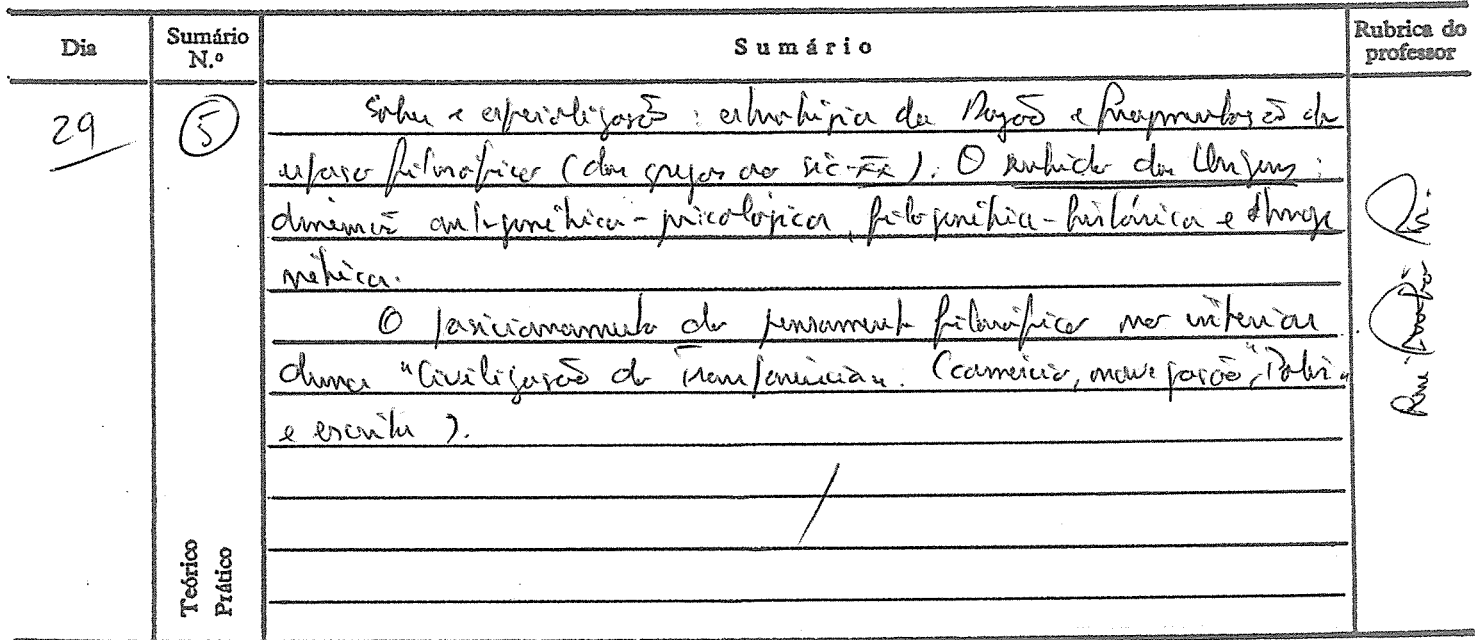 Dia
Sumário N.º
Sumário
Rubrica do professor
29
5
e especialização : da Razão e fragmentação do
espaço filosófico (dos gregos ao séc. XX). O sentido da Origem :
dimensão ontogenética-psicológica, filogenética-histórica e
O posicionamento do pensamento filosófico no interior
duma "Civilização da Transparência". (comércio, navegação, Pólis
e escrita ).
Teórico
Prático